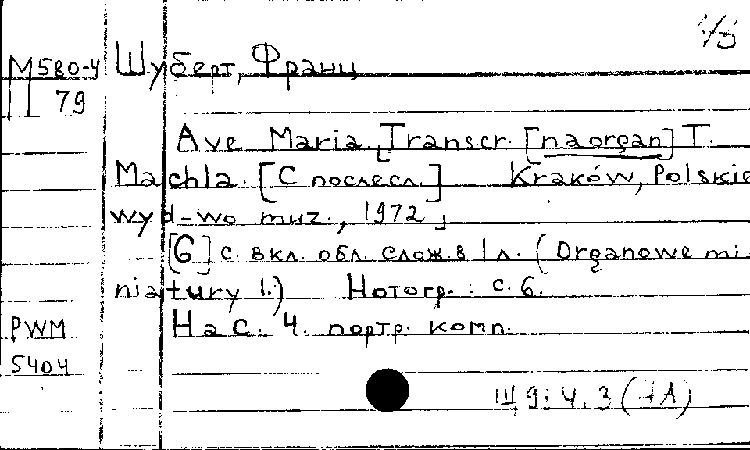 М580-У Шуберт, Франц
II 79
Ave Maria. [Transcr. [na organ] T.
Machla. [С послесл.] Kraków, Polskie
wyd-wo muz., 1972]
[6] с вкл. обл. слож. в 1 л. (Organowe mi-
niatury 1.) Нотогр.: с. 6.
PWM На с. 4. портр. комп.
5404
Щ 9: 4. 3